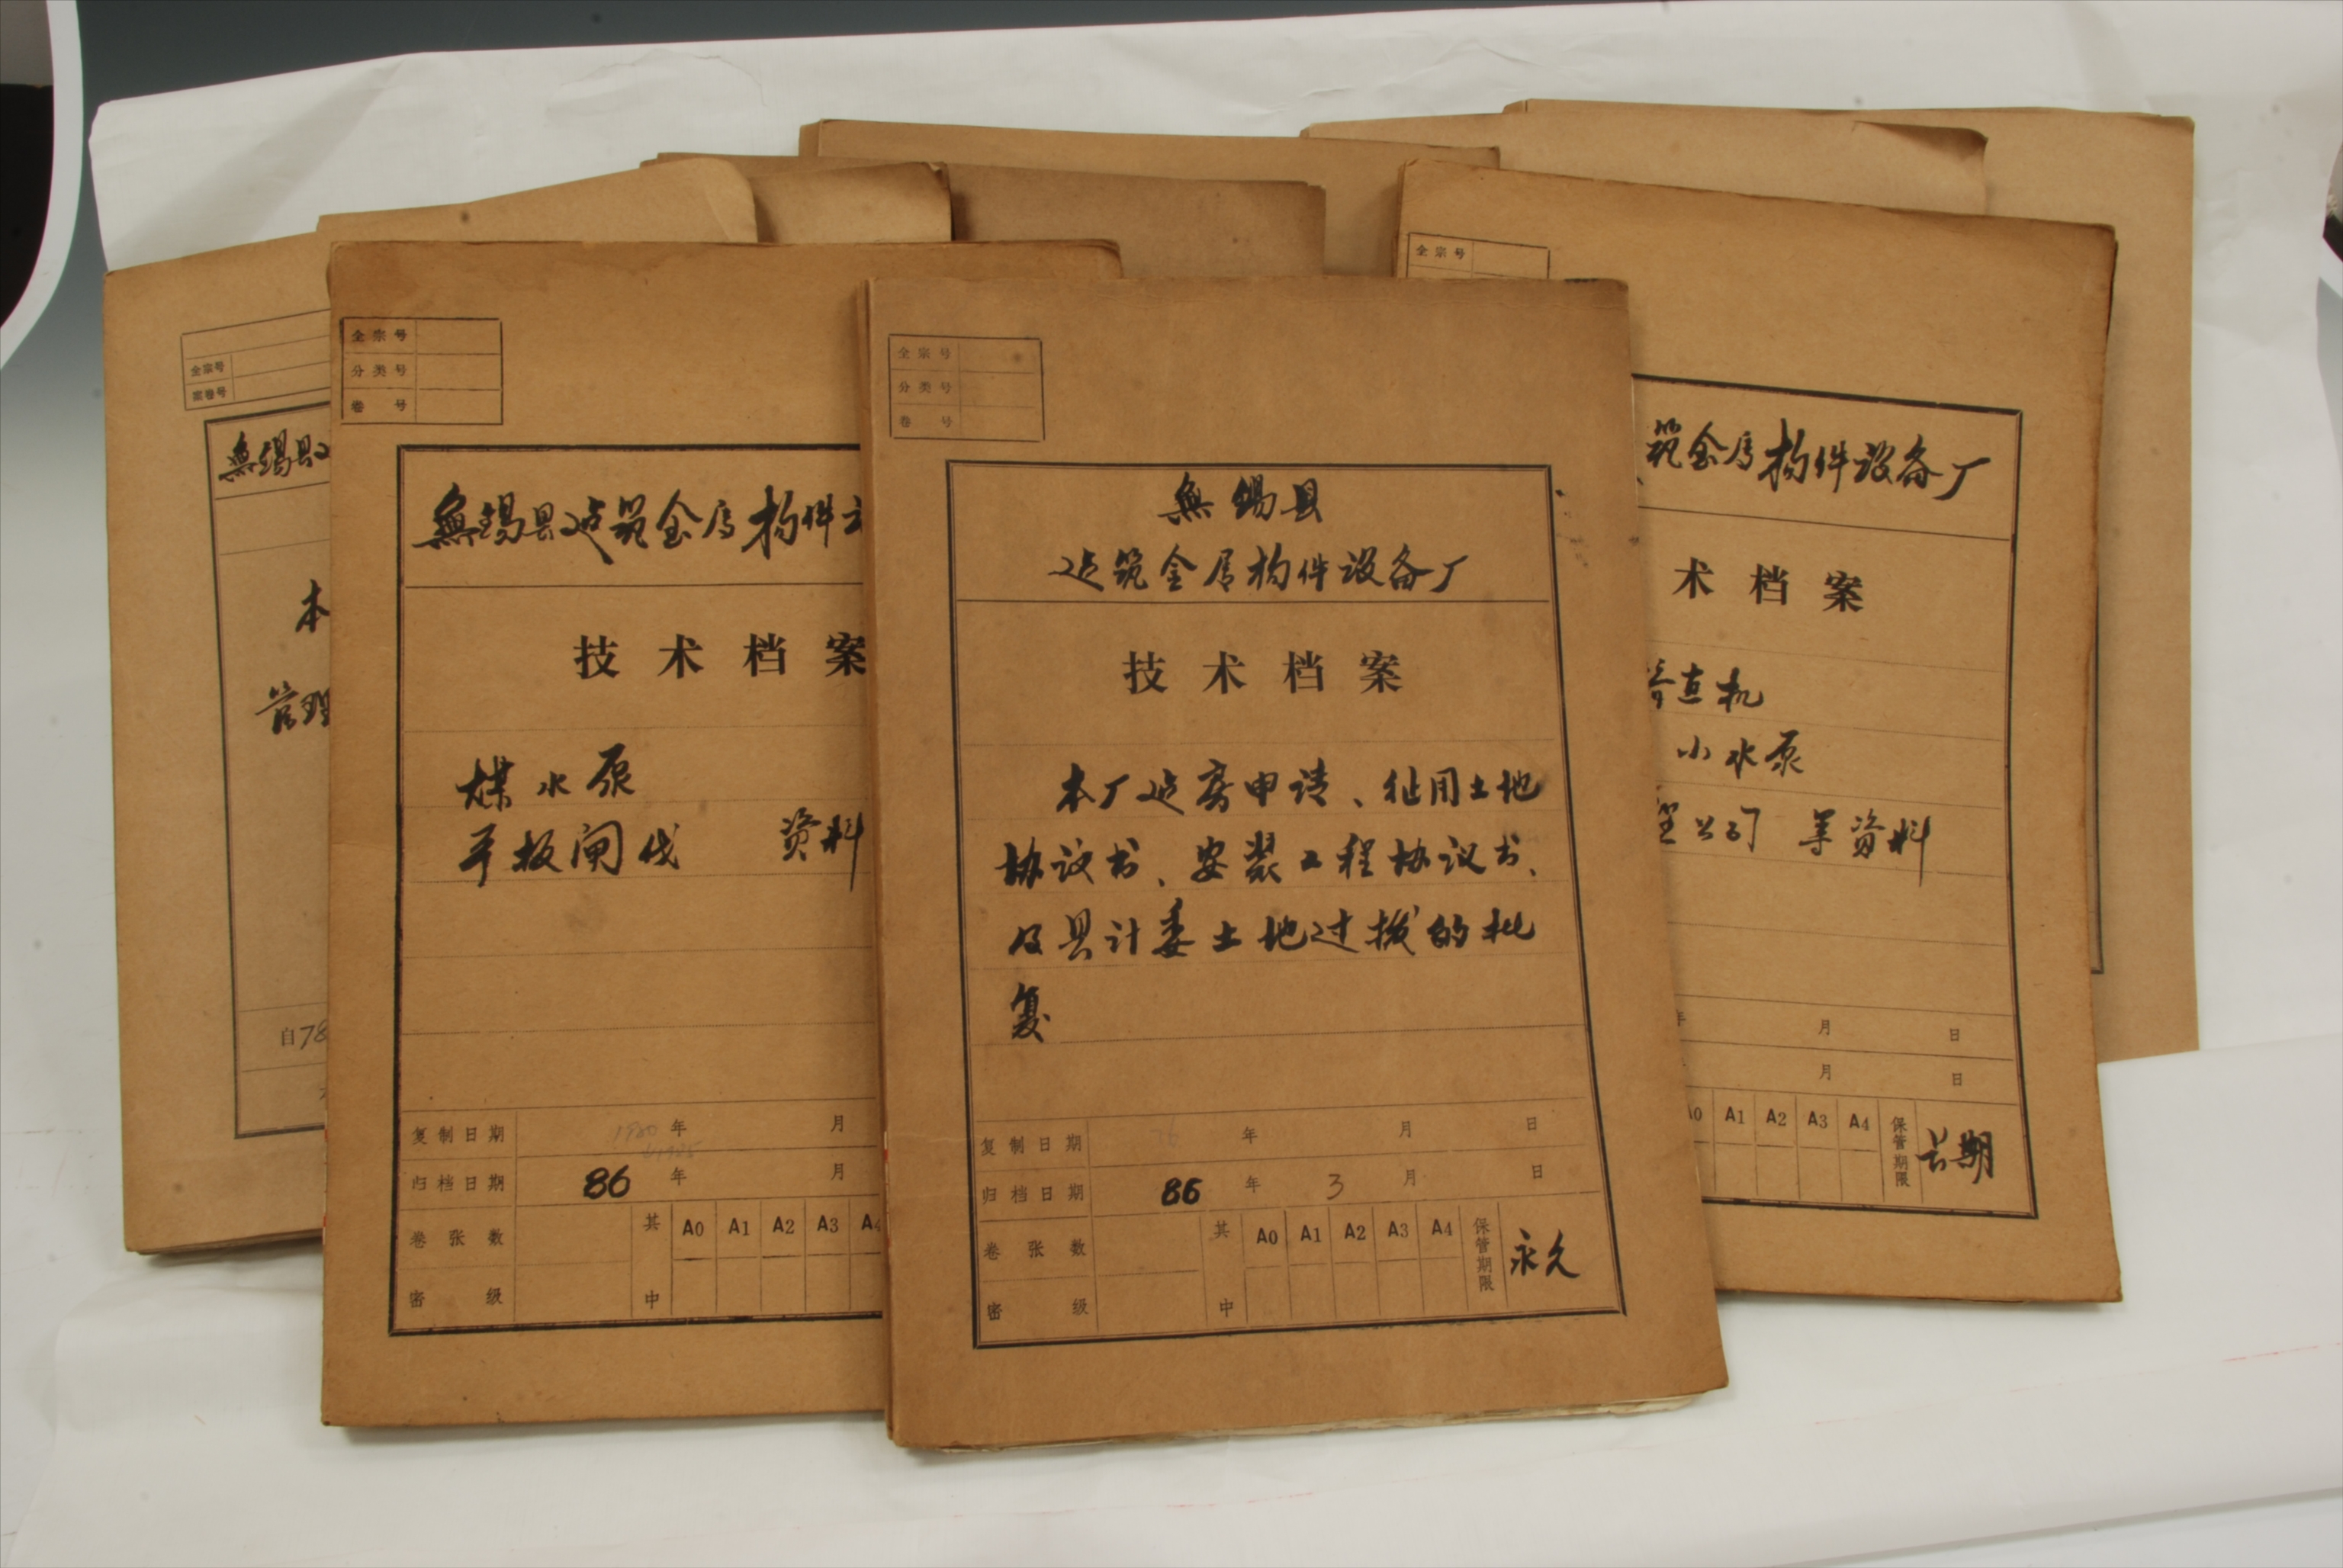 全宗号
宗卷号
無锡县
本
管理
自78
全宗号
分类号
卷号
無锡县建筑金属构件
技术档案
煤水泵
平板闸伐 资料
复制日期 1980年 月
归档日期 86年 月
卷张数 其中 A0 A1 A2 A3 A4
密级
全宗号
分类号
卷号
無锡县
建筑金属构件设备厂
技术档案
本厂造房申请、征用土地
协议书、安装工程协议书、
及县计委土地过拨的批
复
复制日期 76年 月 日
归档日期 86年3月 日
卷张数 其中 A0 A1 A2 A3 A4 保管期限 永久
密级
全宗号
筑金属构件设备厂
术档案
直机
小水泵
公司 等资料
年 月 日
月 日
A0 A1 A2 A3 A4 保管期限 长期